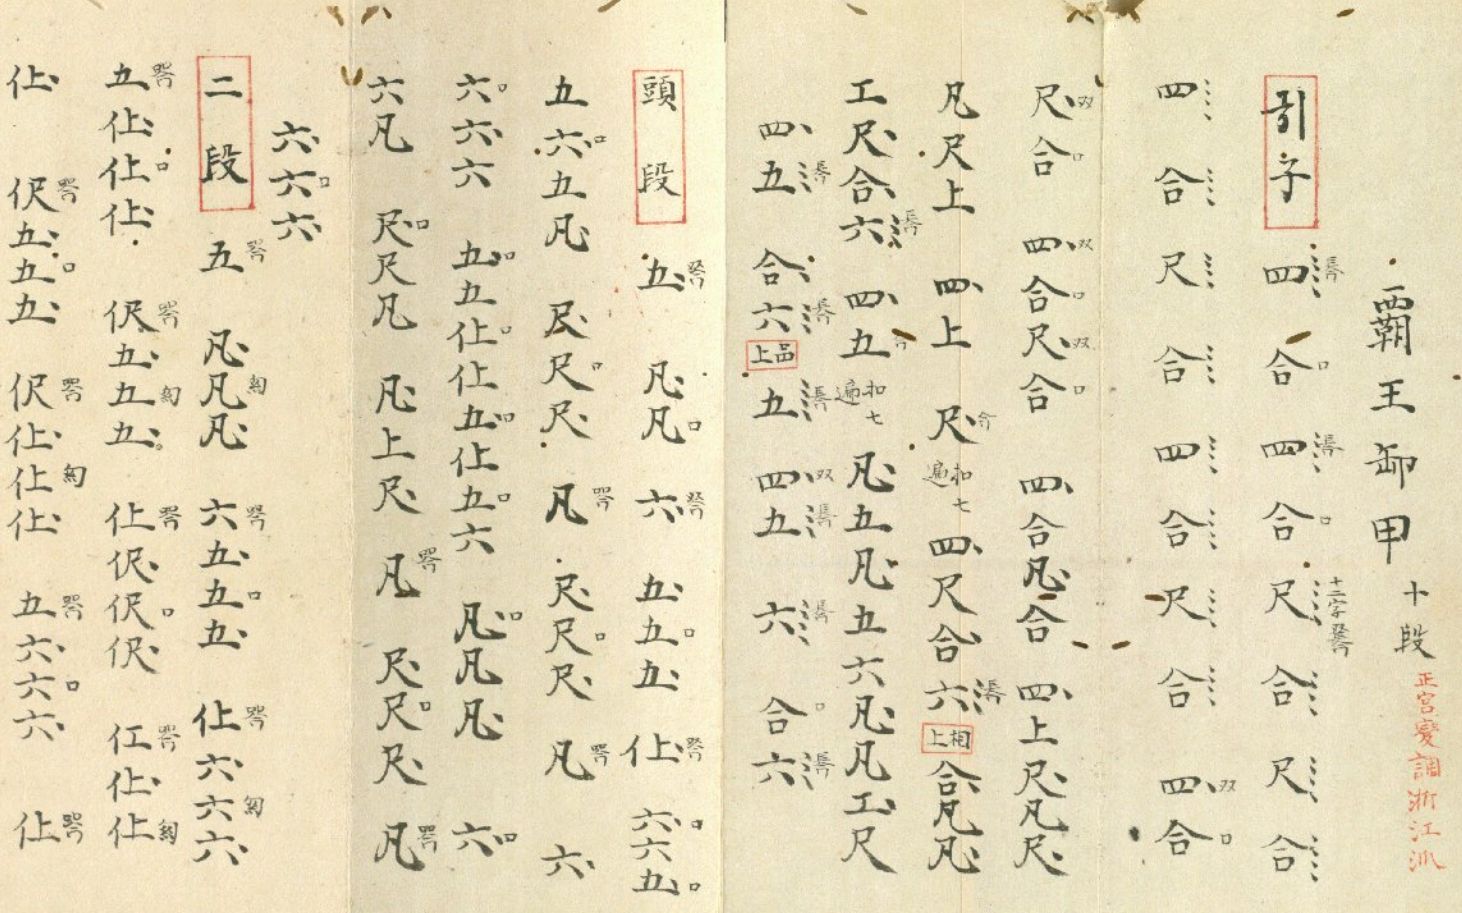 覇王卸甲 十段 正宮變調浙江派
引子 四合四合尺合尺合
四合尺合四合尺合四合
尺合四合尺合四合凡合四上尺凡尺
凡尺上四上尺 扣七遍 四尺合六 相上 合凡凡
工尺合六四五 扣七遍 凡五凡五六凡凡工尺
四五合六 品上 五四五六合六
頭段 五凡凡六五五五仩六六五
五六五凡尺尺尺凡尺尺尺凡六
六六六五五仩仩五仩五六凡凡凡六
六凡尺尺凡凡上尺凡尺尺尺凡
六六六
二段 五凡凡凡六五五五仩六六六
五仩仩仩伬五五五仩伬伬伬仜仩仩
仩伬五五五伬仩仩仩五六六六仩